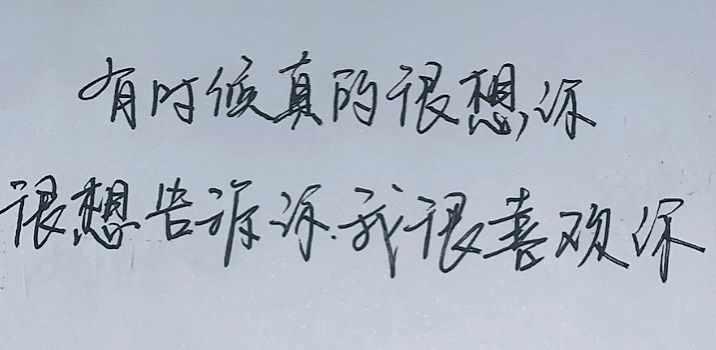 有时候真的很想你
很想告诉你.我很喜欢你